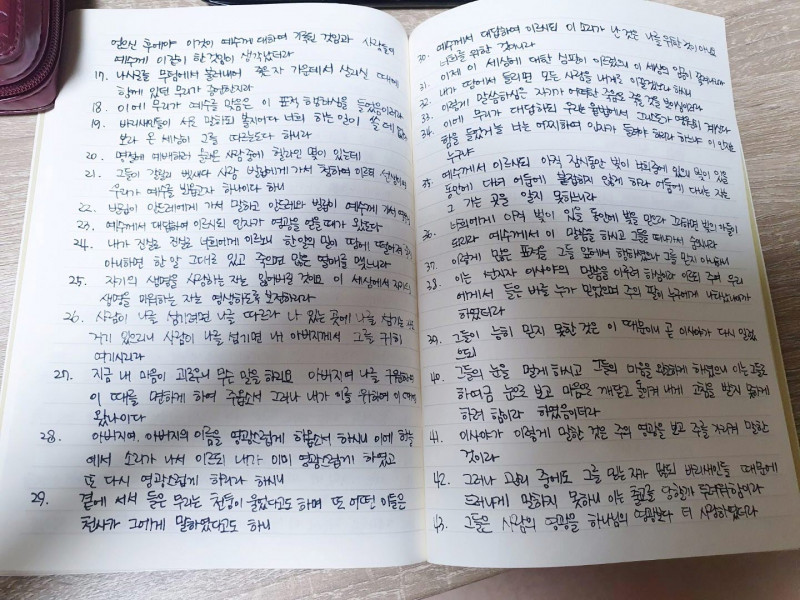 얻으신 후에야 이것이 예수께 대하여 기록된 것임과 사람들이
예수께 이같이 한 것임이 생각났더라
17. 나사로를 무덤에서 불러내어 죽은 자 가운데서 살리실 때에
함께 있던 무리가 증언한지라
18. 이에 무리가 예수를 맞음은 이 표적 행하심을 들었음이러라
19. 바리새인들이 서로 말하되 볼지어다 너희 하는 일이 쓸 데 없다
보라 온 세상이 그를 따르는도다 하니라
20. 명절에 예배하러 올라온 사람 중에 헬라인 몇이 있는데
21. 그들이 갈릴리 벳새다 사람 빌립에게 가서 청하여 이르되 선생이여
우리가 예수를 뵈옵고자 하나이다 하니
22. 빌립이 안드레에게 가서 말하고 안드레와 빌립이 예수께 가서
23. 예수께서 대답하여 이르시되 인자가 영광을 얻을 때가 왔도다
24. 내가 진실로 진실로 너희에게 이르노니 한 알의 밀이 땅에 떨어져
아니하면 한 알 그대로 있고 죽으면 많은 열매를 맺느니라
25. 자기의 생명을 사랑하는 자는 잃어버릴 것이요 이 세상에서 자기의
생명을 미워하는 자는 영생하도록 보전하리라
26. 사람이 나를 섬기려면 나를 따르라 나 있는 곳에 나를 섬기는
거기 있으리니 사람이 나를 섬기면 내 아버지께서 그를 귀히
여기시리라
27. 지금 내 마음이 괴로우니 무슨 말을 하리요 아버지여 나를 구원하여
이 때를 면하게 하여 주옵소서 그러나 내가 이를 위하여 이 때에
왔나이다
28. 아버지여, 아버지의 이름을 영광스럽게 하옵소서 하시니 이에 하늘
에서 소리가 나서 이르되 내가 이미 영광스럽게 하였고
또 다시 영광스럽게 하리라 하시니
29. 곁에 서서 들은 무리는 천둥이 울었다고도 하며 또 어떤 이들은
천사가 그에게 말하였다고도 하니
30. 예수께서 대답하여 이르시되 이 소리가 난 것은 나를 위한 것이 아니요
너희를 위한 것이니라
31. 이제 이 세상에 대한 심판이 이르렀으니 이 세상의 임금이 쫓겨나리라
32. 내가 땅에서 들리면 모든 사람을 내게로 이끌겠노라 하시니
33. 이렇게 말씀하심은 자기가 어떠한 죽음으로 죽을 것을 보이심이러라
34. 이에 무리가 대답하되 우리는 율법에서 그리스도가 영원히 계신다
함을 들었거늘 너는 어찌하여 인자가 들려야 하리라 하느냐 이 인자는
누구냐
35. 예수께서 이르시되 아직 잠시동안 빛이 너희중에 있으니 빛이 있을
동안에 다녀 어둠에 붙잡히지 않게 하라 어둠에 다니는 자는
그 가는 곳을 알지 못하느니라
36. 너희에게 아직 빛이 있을 동안에 빛을 믿으라 그리하면 빛의 아들이
되리라 예수께서 이 말씀을 하시고 그들을 떠나가서 숨으시니라
37. 이렇게 많은 표적을 그들 앞에서 행하셨으나 그를 믿지 아니하니
38. 이는 선지자 이사야의 말씀을 이루려 하심이라 이르되 주여 우리
에게서 들은 바를 누가 믿었으며 주의 팔이 누구에게 나타났나이까
하였더라
39. 그들이 능히 믿지 못한 것은 이 때문이니 곧 이사야가 다시 일렀
으되
40. 그들의 눈을 멀게 하시고 그들의 마음을 완고하게 하셨으니 이는 그들로
하여금 눈으로 보고 마음으로 깨닫고 돌이켜 내게 고침을 받지 못하게
하려 함이라 하였음이더라
41. 이사야가 이렇게 말한 것은 주의 영광을 보고 주를 가리켜 말한
것이라
42. 그러나 관리 중에도 그를 믿는 자가 많되 바리새인들 때문에
드러나게 말하지 못하니 이는 출교를 당할까 두려워함이라
43. 그들은 사람의 영광을 하나님의 영광보다 더 사랑하였더라